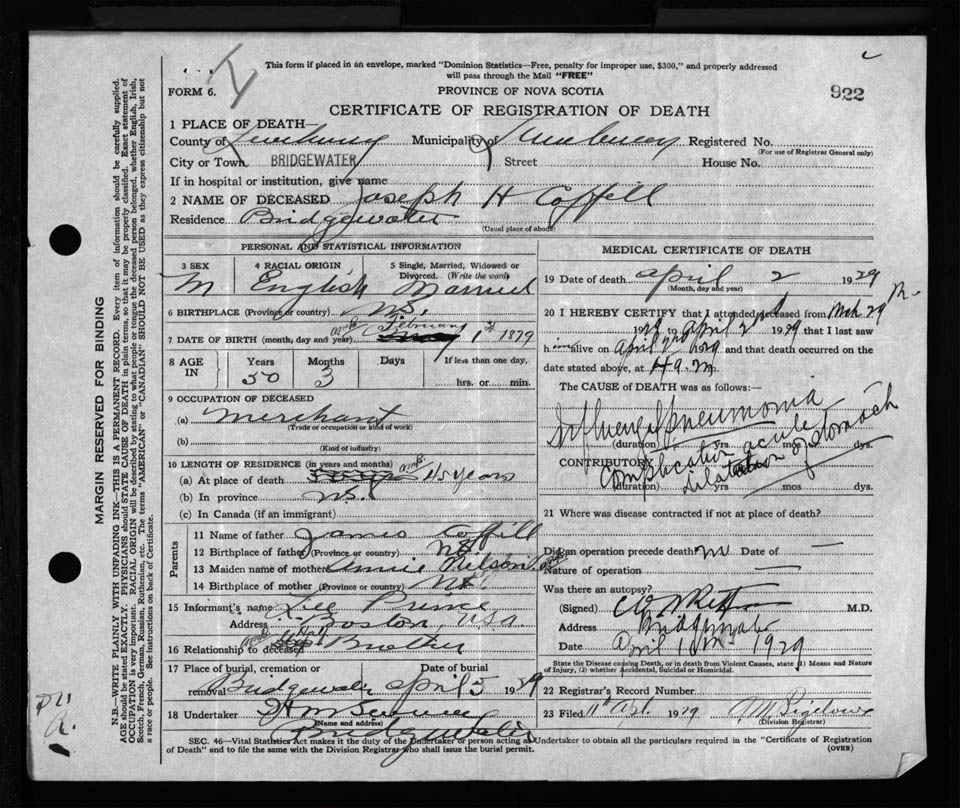 This form if placed in an envelope, marked "Dominion Statistics—Free, penalty for improper use, $300," and properly addressed
will pass through the Mail "FREE"
FORM 6.
PROVINCE OF NOVA SCOTIA
922
CERTIFICATE OF REGISTRATION OF DEATH
1 PLACE OF DEATH—
County of Lunenburg Municipality of Lunenburg Registered No.
(For use of Registrar General only)
City or Town BRIDGEWATER Street House No.
If in hospital or institution, give name
2 NAME OF DECEASED Joseph H Coffill
Residence Bridgewater
(Usual place of abode)
PERSONAL AND STATISTICAL INFORMATION
3 SEX
4 RACIAL ORIGIN
5 Single, Married, Widowed or Divorced. (Write the word)
M English Married
6 BIRTHPLACE (Province or country) N.S.
7 DATE OF BIRTH (month, day and year) February 1st 1879
8 AGE IN
Years Months Days If less than one day,
50 3 hrs. or min.
9 OCCUPATION OF DECEASED
(a) Merchant
(Trade or occupation or kind of work)
(b)
(Kind of industry)
10 LENGTH OF RESIDENCE (in years and months)
(a) At place of death 45 years
(b) In province N.S.
(c) In Canada (if an immigrant)
Parents
11 Name of father James Coffill
12 Birthplace of father (Province or country) NS
13 Maiden name of mother Annie Nelson
14 Birthplace of mother (Province or country) NS
15 Informant's name Lee Prince
Address Boston, USA
16 Relationship to deceased Brother
17 Place of burial, cremation or removal Date of burial
Bridgewater April 5 1929
18 Undertaker
(Name and address)
Bridgewater
MEDICAL CERTIFICATE OF DEATH
19 Date of death April 2 1929
(Month, day and year)
20 I HEREBY CERTIFY that I attended deceased from Mch 29th
1929 to April 2nd 1929 that I last saw
him alive on April 2nd 1929 and that death occurred on the
date stated above, at 4 a.m.
The CAUSE of DEATH was as follows:—
Influenzal pneumonia
(duration) yrs. mos dys.
CONTRIBUTORY
Complication acute
dilatation of stomach
(duration) yrs. mos dys.
21 Where was disease contracted if not at place of death?
Did an operation precede death? no Date of —
Nature of operation —
Was there an autopsy?
(Signed) M.D.
Address Bridgewater
Date April 1929
State the Disease causing Death, or in death from Violent Causes, state (1) Means and Nature
of Injury, (2) whether Accidental, Suicidal or Homicidal.
22 Registrar's Record Number
23 Filed 11th Apl. 1929
(Division Registrar)
SEC. 46—Vital Statistics Act makes it the duty of the Undertaker or person acting as Undertaker to obtain all the particulars required in the "Certificate of Registration
of Death" and to file the same with the Division Registrar who shall issue the burial permit.
(OVER)
MARGIN RESERVED FOR BINDING
N.B.—WRITE PLAINLY WITH UNFADING INK—THIS IS A PERMANENT RECORD. Every item of information should be carefully supplied.
AGE should be stated EXACTLY. PHYSICIANS should STATE CAUSE OF DEATH in plain terms, so that it may be properly classified. Exact statement of
OCCUPATION is very important. RACIAL ORIGIN will be described by stating to what people or tongue the deceased person belonged, whether English, Irish,
Scotch, French, German, Russian, Ruthenian, etc. The terms "AMERICAN" or "CANADIAN" SHOULD NOT BE USED as they express citizenship but not
a race or people. See instructions on back of Certificate.